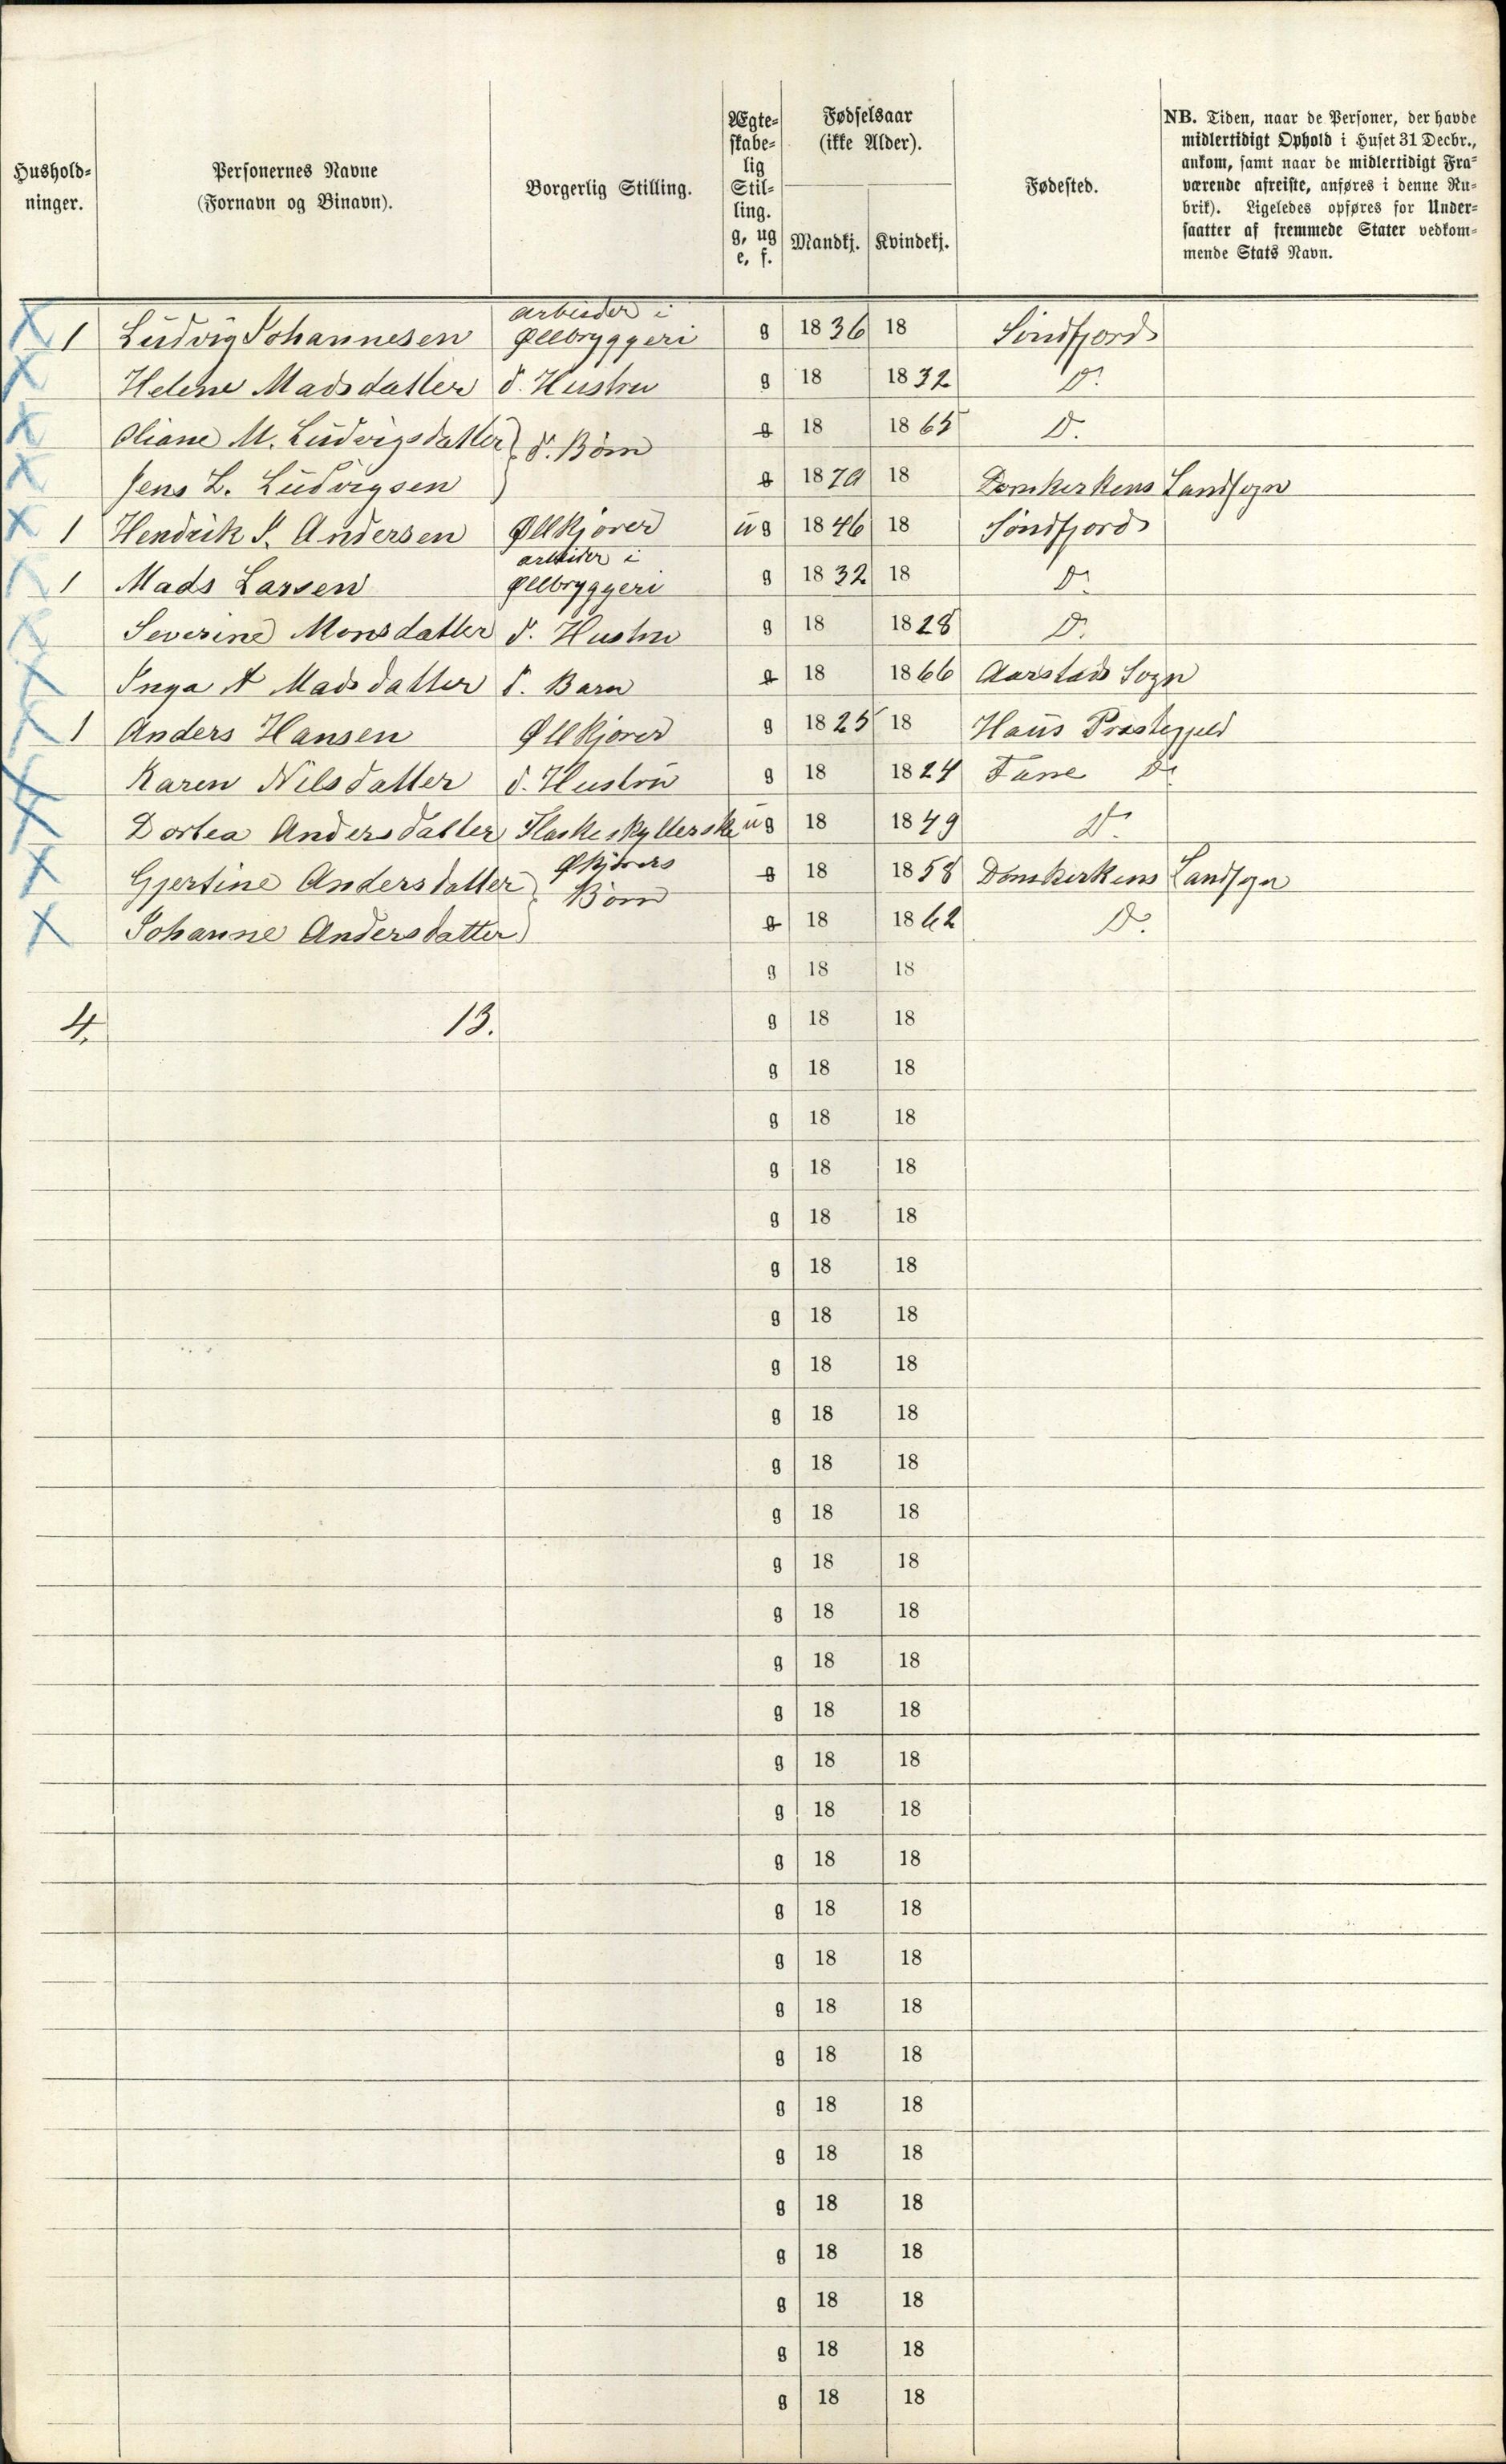 Hushold-
ninger.
Personernes Navne
(Fornavn og Binavn).
Borgerlig Stilling.
Ægte-
skabe-
lig
Stil-
ling.
g, ug
e, f.
Fødselsaar
(ikke Alder).
Mandkj. Kvindekj.
Fødested.
NB. Tiden, naar de Personer, der havde
midlertidigt Ophold i Huset 31 Decbr.,
ankom, samt naar de midlertidigt Fra-
værende afreiste, anføres i denne Ru-
brik). Ligeledes opføres for Under-
saatter af fremmede Stater vedkom-
mende Stats Navn.
X 1 Ludvig Johannesen arbeider i Øllbryggeri g 1836 18 Søndfjord
X Helene Madsdatter d. Hustru g 18 1832 Do
X Oliane M. Ludvigsdatter } d. Børn g 18 1865 Do
X Jens L. Ludvigsen g 1870 18 Domkirkens Landsogn
X 1 Hendrik J. Andersen Øllkjører ug 1846 18 Søndfjord
X 1 Mads Larsen arbeider i Øllbryggeri g 1832 18 Do
X Severine Monsdatter d. Hustru g 18 1828 Do
X Inga A Madsdatter d. Barn g 18 1866 Aarstads Sogn
X 1 Anders Hansen Øllkjører g 1825 18 Haus Præstegjeld
X Karen Nilsdatter d. Hustru g 18 1824 Fane Do
X Dortea Andersdatter Flaskeskyllerske ug 18 1849 Do
X Gjertine Andersdatter } Økjørers Børn g 18 1858 Domkirkens Landsogn
X Johanne Andersdatter g 18 1862 Do
g 18 18
4. 13. g 18 18
g 18 18
g 18 18
g 18 18
g 18 18
g 18 18
g 18 18
g 18 18
g 18 18
g 18 18
g 18 18
g 18 18
g 18 18
g 18 18
g 18 18
g 18 18
g 18 18
g 18 18
g 18 18
g 18 18
g 18 18
g 18 18
g 18 18
g 18 18
g 18 18
g 18 18
g 18 18
g 18 18
g 18 18